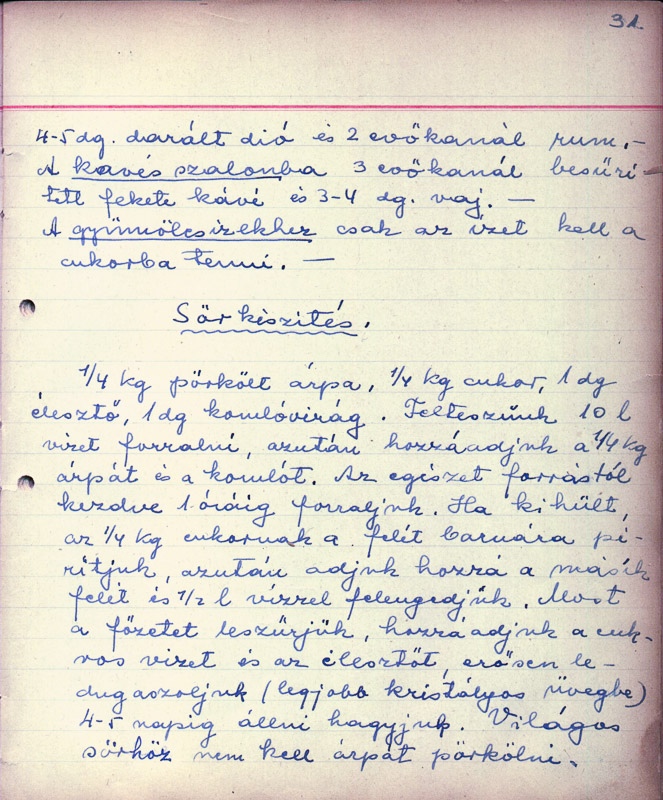 31
4-5 dg. darált dió és 2 evőkanál rum.-
A kavés szalonba 3 evőkanál besűri-
tett fekete kávé és 3-4 dg. vaj. —
A gyümölcsizekhez csak az ízet kell a
cukorba tenni. —
Sörkészités.
1/4 kg pörkölt árpa, 1/4 kg cukor, 1 dg
élesztő, 1 dg komlóvirág. Felteszünk 10 l
vizet forralni, azután hozzáadjuk a 1/4 kg
árpát és a komlót. Az egészet forrástól
kezdve 1 óráig forraljuk. Ha kihült,
az 1/4 kg cukornak a felét barnára pi-
rítjuk, azután adjuk hozzá a másik
felét és 1/2 l vízzel felengedjük. Most
a főzetet leszűrjük, hozzáadjuk a cuk-
ros vizet és az élesztőt, erősen le-
dugaszoljuk (legjobb kristályos üvegbe)
4-5 napig állni hagyjuk. Világos
sörhöz nem kell árpát pörkölni.